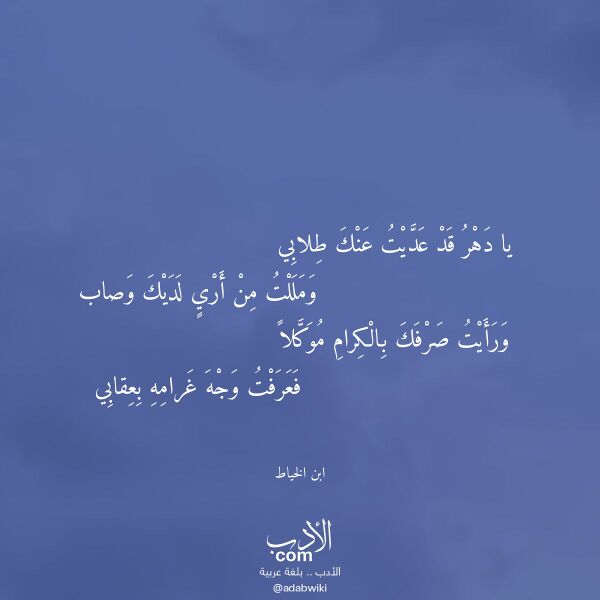 يا دَهْرُ قَدْ عَدَّيْتُ عَنْكَ طِلابِي
وَمَلَلْتُ مِنْ أَرْيٍ لَدَيْكَ وَصاب
وَرَأَيْتُ صَرْفَكَ بِالْكِرامِ مُوَكَّلاً
فَعَرَفْتُ وَجْهَ غَرامِهِ بِعِقابِي
ابن الخياط
الأدب
com
الأدب .. بلغة عربية
@adabwiki